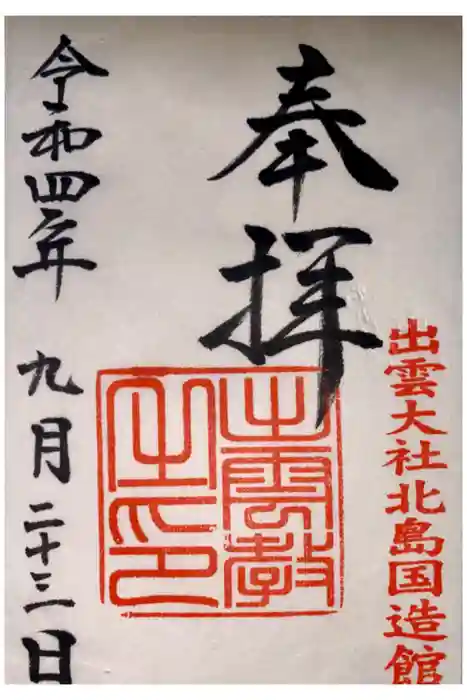 奉拝
出雲大社北島国造館
出雲教
之印
令和四年
九月二十三日